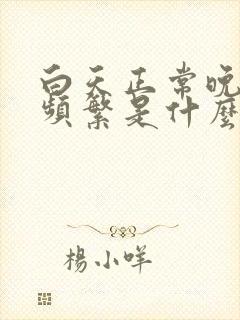 白天正常晚
頻繁是什麼
楊小咩